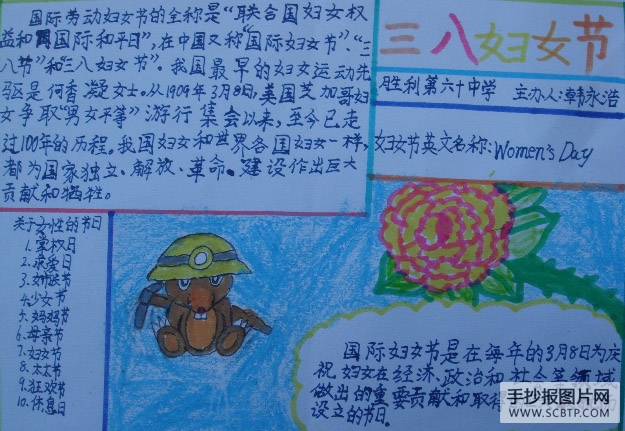 国际劳动妇女节的全称是“联合国妇女权
益和国际和平日”,在中国又称“国际妇女节”、“三
八节”和“三八妇女节”。我国最早的妇女运动先
驱是何香凝女士。从1909年3月8日,美国芝加哥妇
女争取“男女平等”游行集会以来,至今已走
过100年的历程。我国妇女和世界各国妇女一样,
都为国家独立、解放、革命。建设作出巨大
贡献和牺牲。
三八妇女节
胜利第六十中学 主办人:韩永浩
妇女节英文名称:Women's Day
关于女性的节日
1.掌权日
2.求爱日
3.姊妹节
4.少女节
5.妈妈节
6.母亲节
7.妇女节
8.太太节
9.狂欢节
10.休息日
国际妇女节是在每年的3月8日为庆
祝妇女在经济、政治和社会等领域
做出的重要贡献和取得
设立的节日。
手抄报图片网
WWW.SCBTP.COM